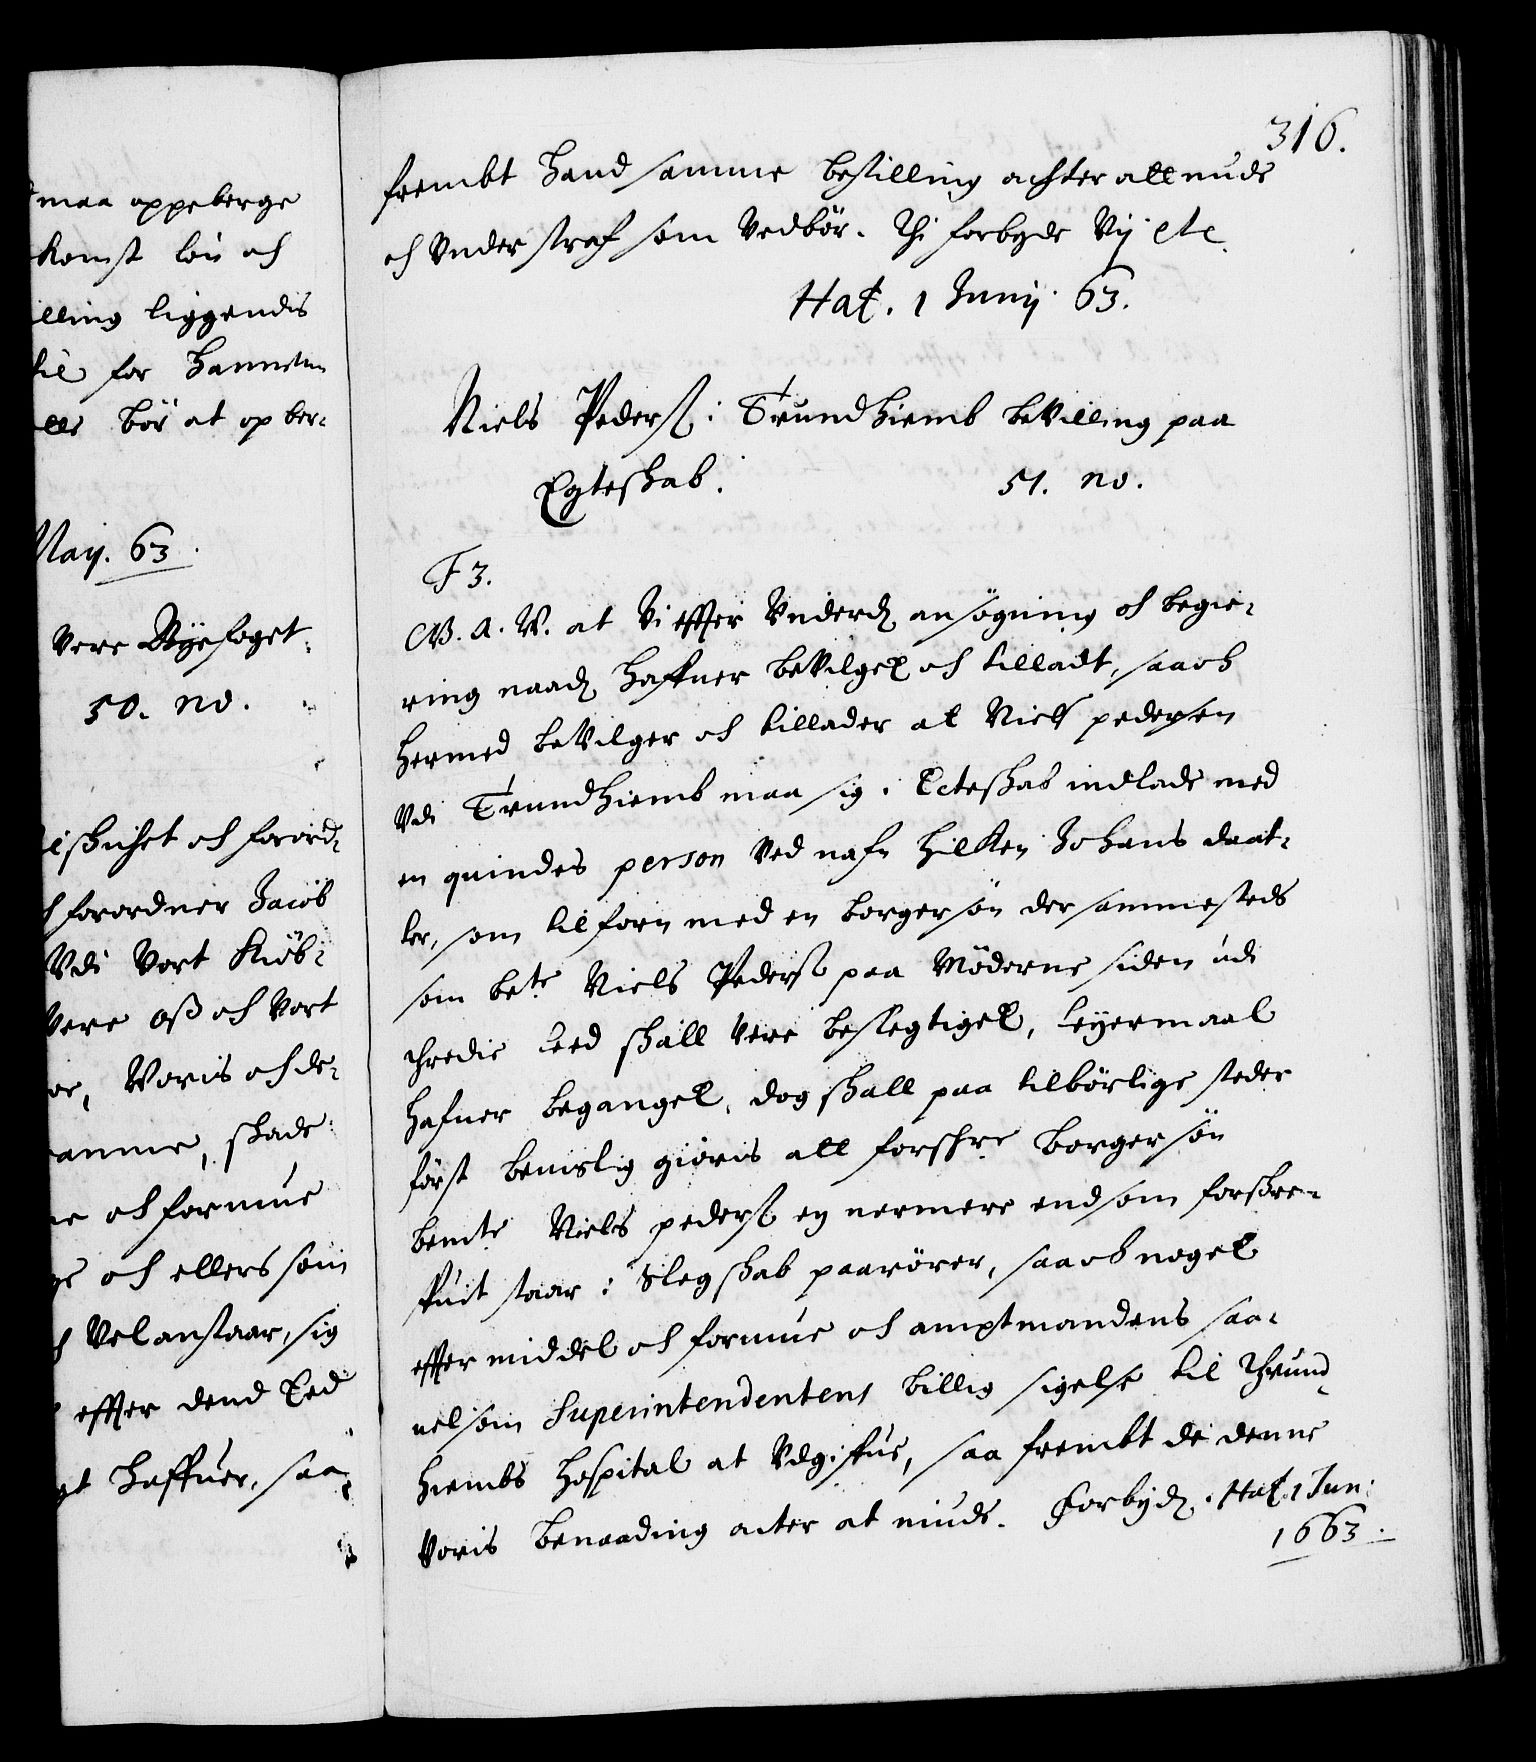 maa oppeberge
komst lön och
illing liggendis
til for hannem
elle bör at op ber-
Maij. 63.
vere Byefoget.
50. no.
skichet och forord-
forordner Jacob
Vdi Vort Kiöb-
Vere oss och Vort
or, Voris och de-
ramme, skade
ne och formue
ge och ellers som
Vel anstaar, sig
effter dend Eed
gt haffuer, saa
316.
frembt hand samme bestilling achter att niude
och vnder straf som vedbör. Thi forbyde Vij etc.
Haf. 1 Junij 63.
Niels Peders i Trundhiemb bevilling paa
Egteskab. 51. no.
F 3.
G. A. W. at Vi effter vnderd ansögning och begie-
ring naad haffuer bevilget och tilladt, saa och
hermed bevilger och tillader at Niels pedersen
Vdi Trundhiemb maa sig i Ecteskab indlade med
en quindes person ved nafn Hilken Johans daat-
ter, som tilforn med en borgersön der sammesteds
som bete Niels Peders paa Möderne siden udi
thredie leed skall vere beslegtiget, leyermaal
hafuer beganget, dog skall paa tilbörlige steder
först beuislig giöris att forschre borgersön
bemte Niels peders ey nermere end som forskre-
fuit staar i Slegskab paarörer, saa och noget
effter middel och formue och amptmandens saa-
uelsom Superintendentens billig sigelse til Thrund-
hiembs Hospital at vdgifue, saa frembt de denne
voris benaading acter at niude. Forbyd. Haf. 1 Jun:
1663.